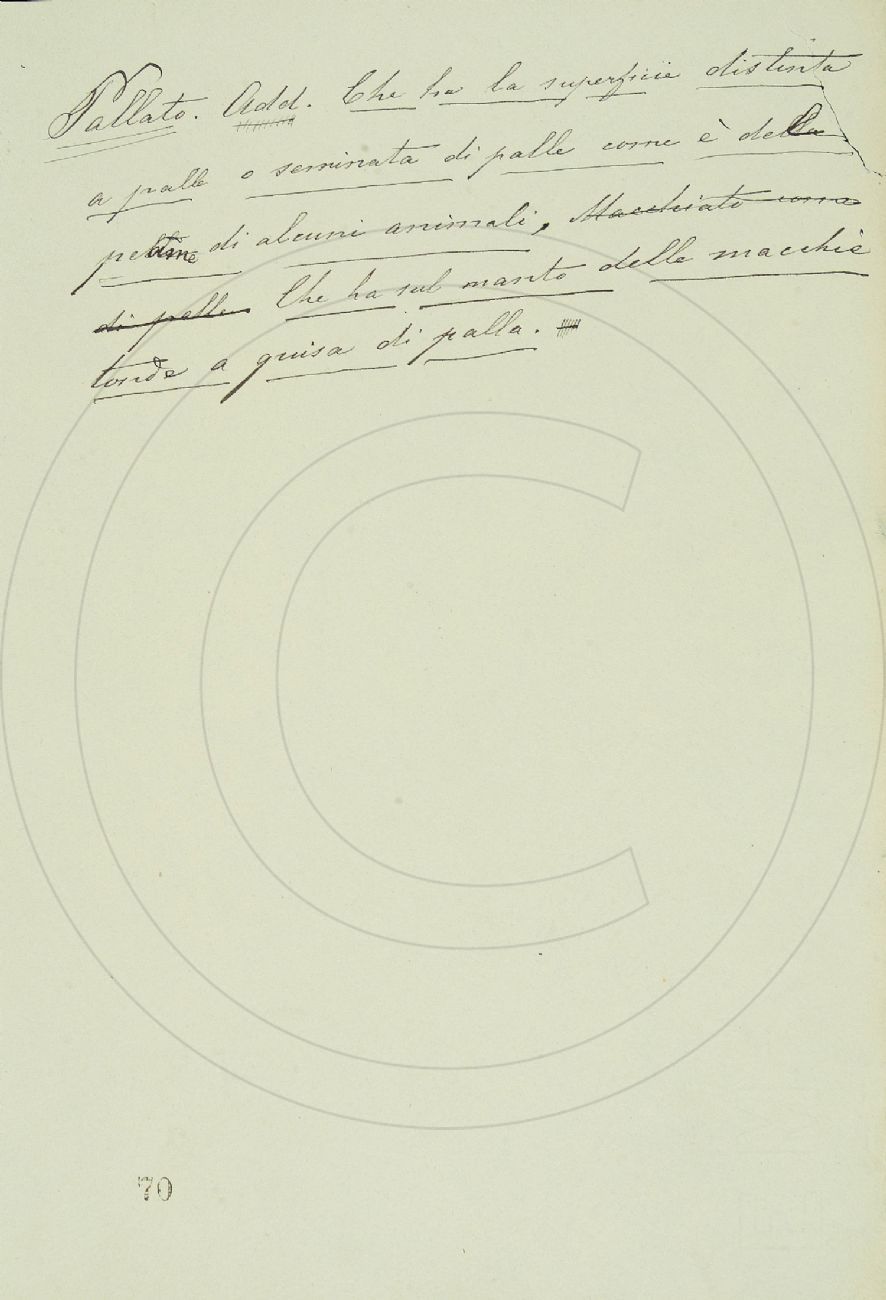 Pallato. Add. Che ha la superficie distinta
a palle o seminata di palle come è della
di alcuni animali, Macchiato come
di palle. Che ha sul manto delle macchie
tonde a guisa di palla.
70